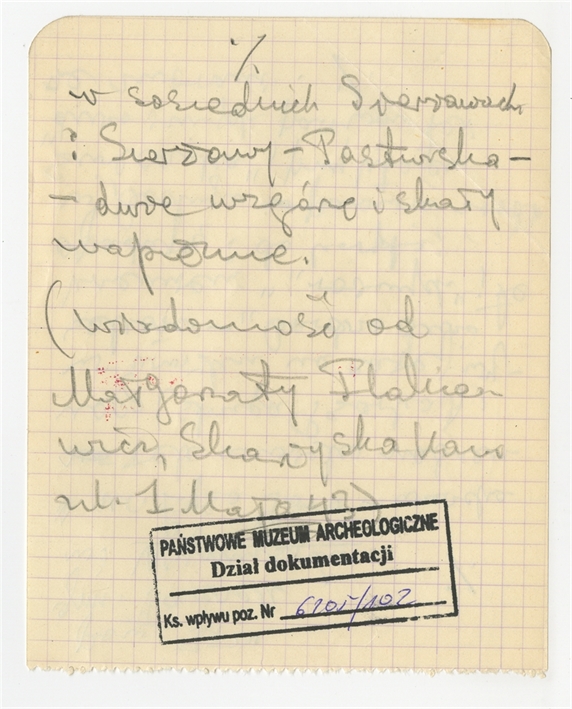 ·/.
w sosiednich Sierzawach
: Sierzawy – Pastwiska –
– duże wzgórze i skały
wapienne.
(wiadomość od
Małgorzaty
wicz, Skarżyska Kam
ul. 1 Maja 43)
PAŃSTWOWE MUZEUM ARCHEOLOGICZNE
Dział dokumentacji
Ks. wpływu poz. Nr 6205/102